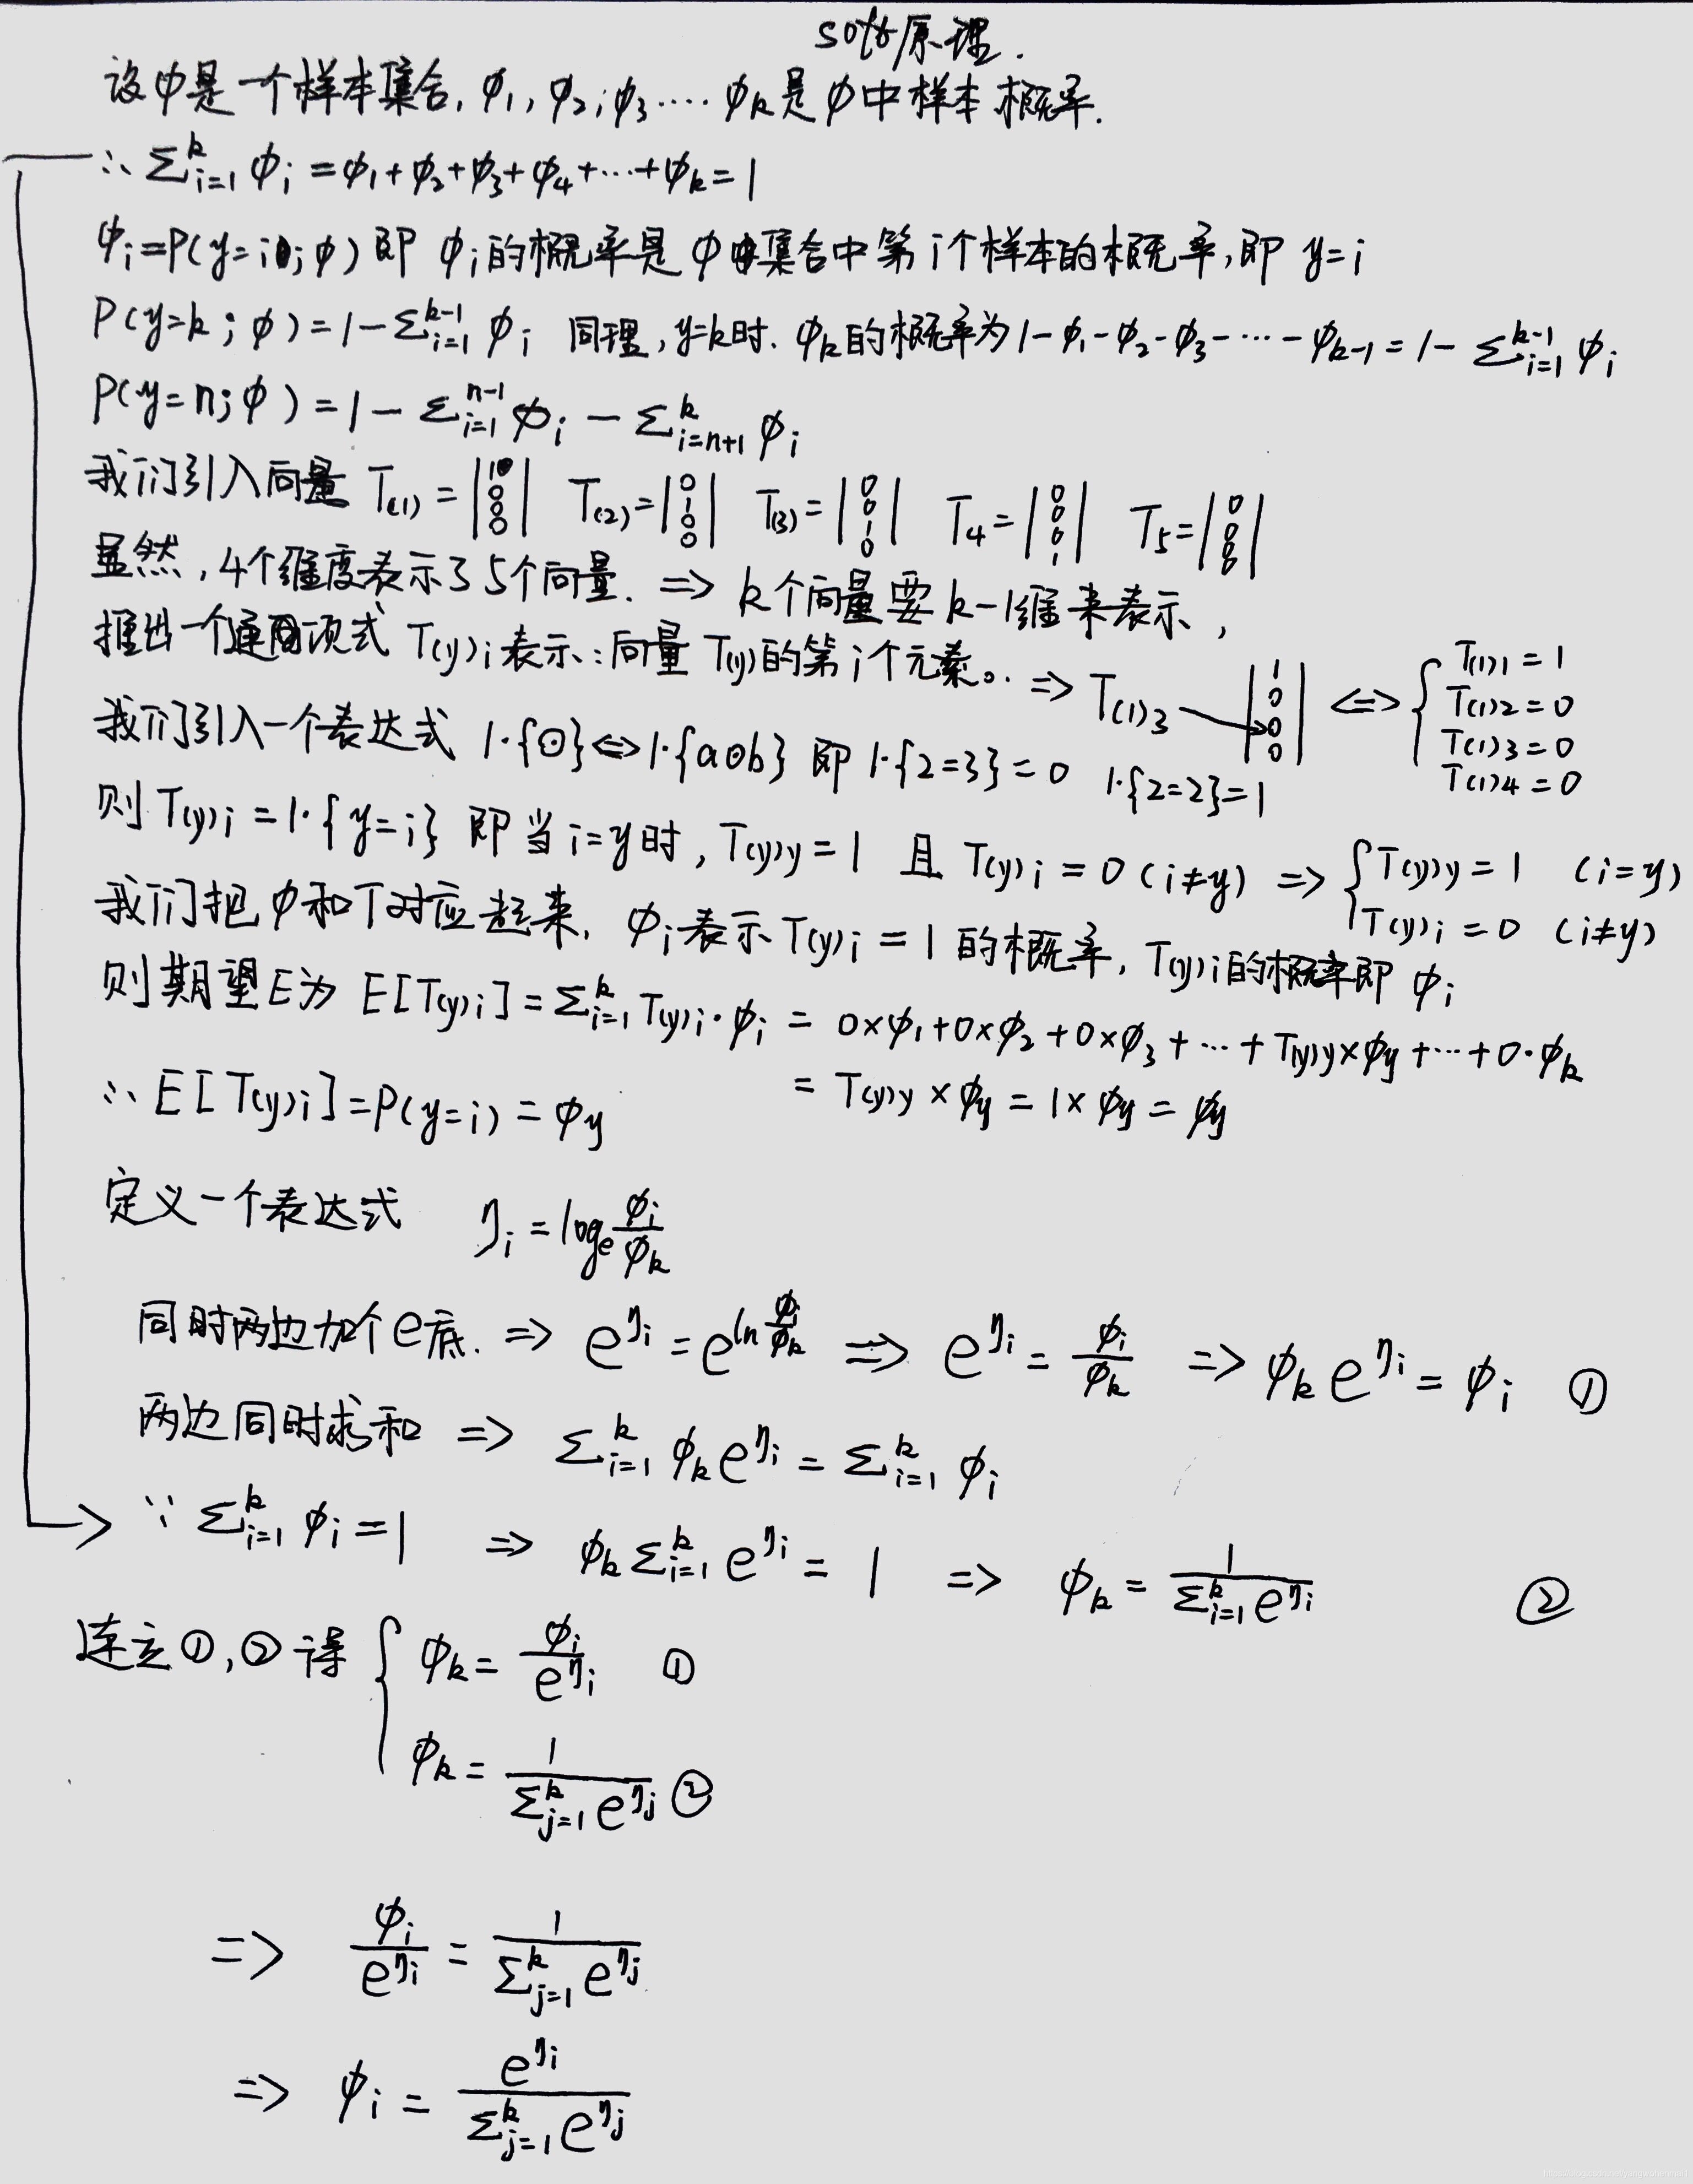 soft原理.
设φ是一个样本集合, φ₁, φ₂, φ₃ ····· φₖ是φ中样本概率.
∴ Σᵢ₌₁ᵏ φᵢ = φ₁+φ₂+φ₃+φ₄+···+φₖ = 1
φᵢ=P(y=i;φ) 即 φᵢ的概率是φ集合中第i个样本的概率,即 y=i
P(y=k;φ)=1-Σᵢ₌₁ᵏ⁻¹ φᵢ 同理,y=k时. φₖ的概率为1-φ₁-φ₂-φ₃-···-φₖ₋₁ = 1- Σᵢ₌₁ᵏ⁻¹ φᵢ
P(y=n;φ)=1- Σᵢ₌₁ⁿ⁻¹ φᵢ - Σᵢ₌ₙ₊₁ᵏ φᵢ
我们引入向量 T₍₁₎=|1 0 0 0| T₍₂₎=|0 1 0 0| T₍₃₎=|0 0 1 0| T₄=|0 0 0 1| T₅=|0 0 0 0|
显然,4个维度表示了5个向量. => k个向量要k-1维来表示,
推出一个通项式 T(y)i表示:向量T(y)的第i个元素。 => T(1)3 |1 0 0 0| <=> { T(1)1=1 T(1)2=0 T(1)3=0 T(1)4=0
我们引入一个表达式 1·{⊙}<=>1·{a⊙b} 即 1·{2=3}=0 1·{2=2}=1
则 T(y)i =1·{y=i} 即当i=y时, T(y)y=1 且 T(y)i=0 (i≠y) => { T(y)y=1 (i=y) T(y)i=0 (i≠y)
我们把φ和T对应起来, φᵢ表示T(y)i=1的概率, T(y)i的概率即 φᵢ
则期望E为 E[T(y)i]=Σᵢ₌₁ᵏ T(y)i·φᵢ = 0×φ₁+0×φ₂+0×φ₃+···+T(y)y×φy+···+0·φₖ
= T(y)y×φy=1×φy=φy
∴ E[T(y)i]=P(y=i)=φy
定义一个表达式 ηᵢ=logₑ φᵢ/φₖ
同时两边加个e底. => e^ηᵢ=e^(ln φᵢ/φₖ) => e^ηᵢ=φᵢ/φₖ => φₖ e^ηᵢ=φᵢ ①
两边同时求和 => Σᵢ₌₁ᵏ φₖ e^ηᵢ=Σᵢ₌₁ᵏ φᵢ
∵ Σᵢ₌₁ᵏ φᵢ=1 => φₖ Σᵢ₌₁ᵏ e^ηᵢ=1 => φₖ=1/Σᵢ₌₁ᵏ e^ηᵢ ②
连立①,②得 { φₖ=φᵢ/e^ηᵢ ①
φₖ=1/Σⱼ₌₁ᵏ e^ηⱼ ②
=> φᵢ/e^ηᵢ=1/Σⱼ₌₁ᵏ e^ηⱼ
=> φᵢ=e^ηᵢ/Σⱼ₌₁ᵏ e^ηⱼ